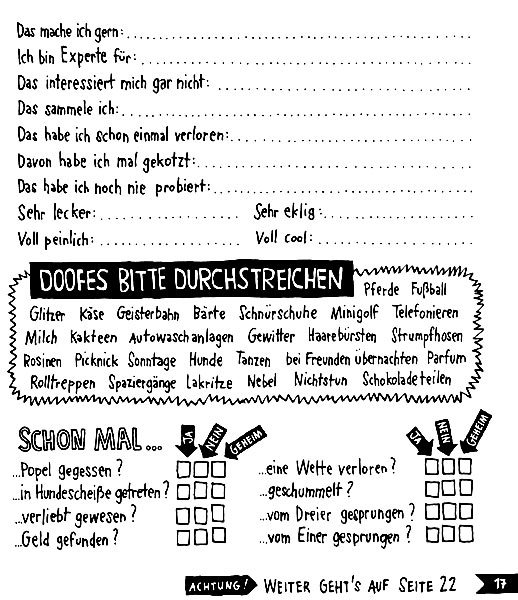 Das mache ich gern:
Ich bin Experte für:
Das interessiert mich gar nicht:
Das sammele ich:
Das habe ich schon einmal verloren:
Davon habe ich mal gekotzt:
Das habe ich noch nie probiert:
Sehr lecker: Sehr eklig:
Voll peinlich: Voll cool:
DOOFES BITTE DURCHSTREICHEN Pferde Fußball
Glitzer Käse Geisterbahn Bärte Schnürschuhe Minigolf Telefonieren
Milch Kakteen Autowaschanlagen Gewitter Haarebürsten Strumpfhosen
Rosinen Picknick Sonntage Hunde Tanzen bei Freunden übernachten Parfum
Rolltreppen Spaziergänge Lakritze Nebel Nichtstun Schokolade teilen
SCHON MAL... JA NEIN GEHEIM JA NEIN GEHEIM
...Popel gegessen? ...eine Wette verloren?
...in Hundescheiße getreten? ...geschummelt?
...verliebt gewesen? ...vom Dreier gesprungen?
...Geld gefunden? ...vom Einer gesprungen?
ACHTUNG! WEITER GEHT'S AUF SEITE 22 17